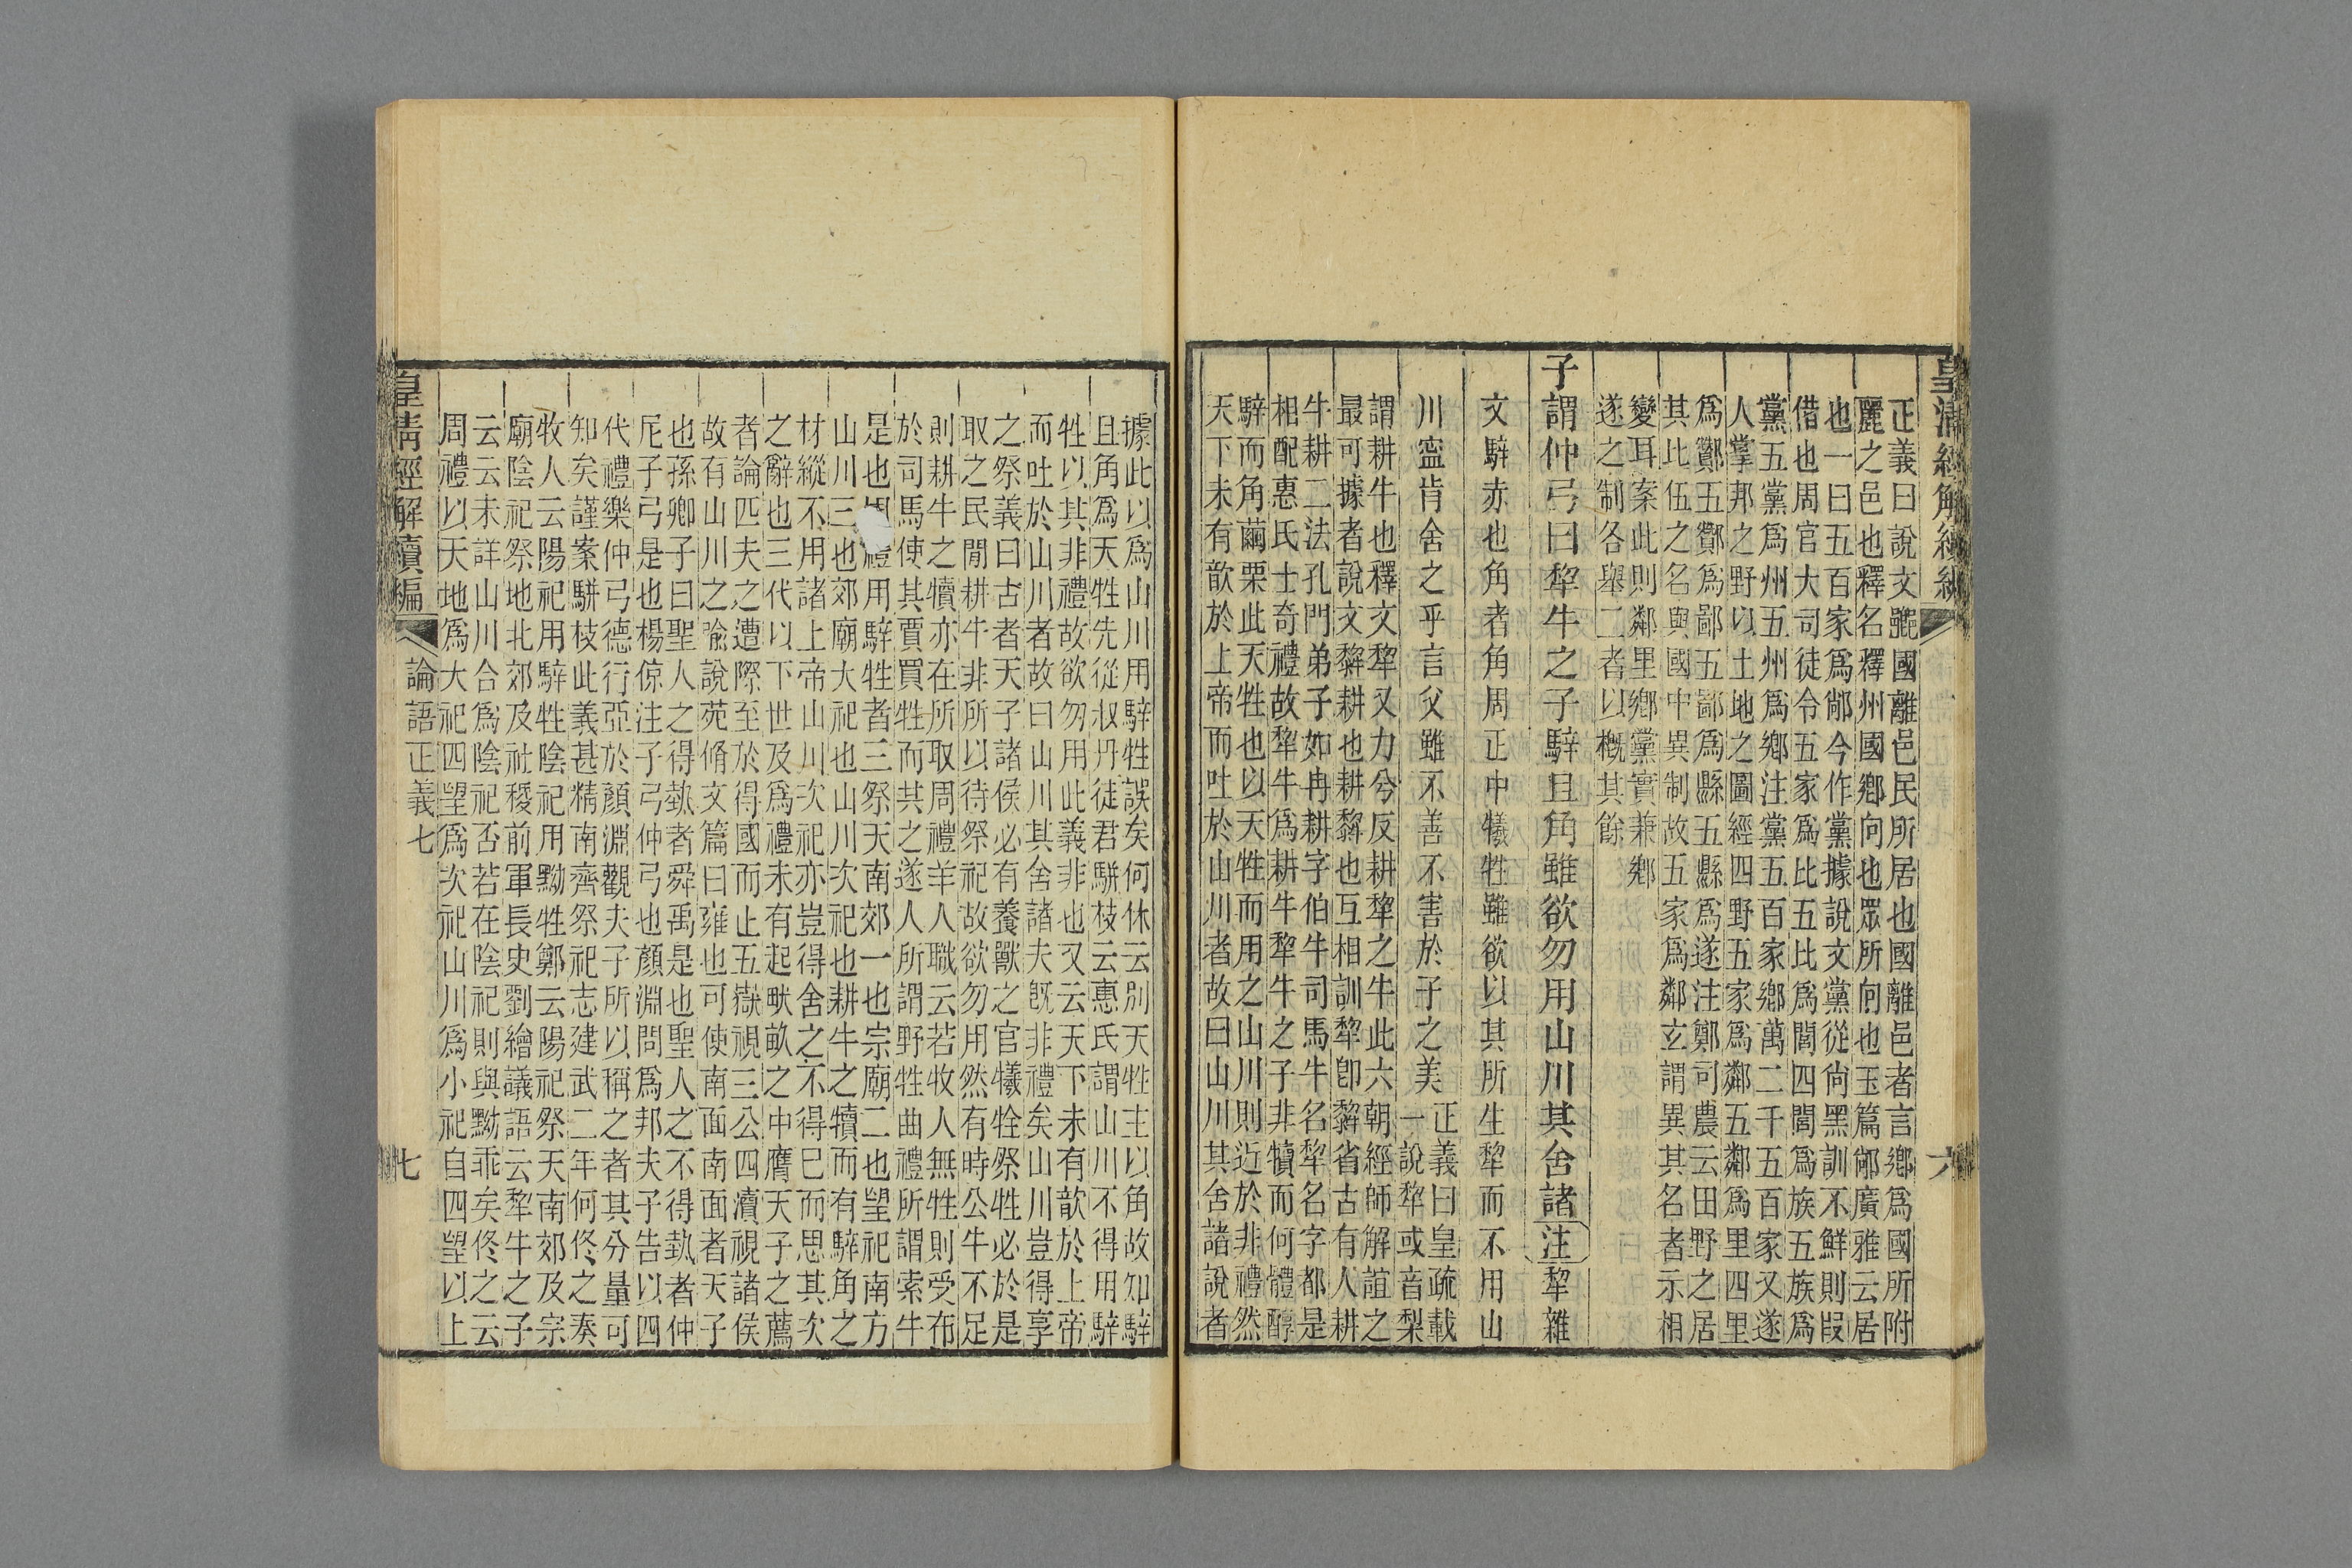 皇清經解續編
六
正義曰說文䣈國離邑民所居也國離邑者言鄉爲國所附
麗之邑也釋名釋州國鄉向也眾所向也玉篇鄕廣雅云居
也一曰五百家爲鄕今作黨據說文黨從尚黑訓不鮮則叚
借也周官大司徒令五家爲比五比爲閭四閭爲族五族爲
黨五黨爲州五州爲鄉注黨五百家鄉萬二千五百家又遂
人掌邦之野以土地之圖經四野五家爲鄰五鄰爲里四里
爲酇五酇爲鄙五鄙爲縣五縣爲遂注鄭司農云田野之居
其比伍之名與國中異制故五家爲鄰玄謂異其名者示相
變耳案此則鄰里鄉黨實兼鄉
遂之制各舉二者以槪其餘
子謂仲弓曰犂牛之子騂且角雖欲勿用山川其舍諸注犂雜
文騂赤也角者角周正中犧牲雖欲以其所生犂而不用山
川寧肯舍之乎言父雖不善不害於子之美
正義曰皇疏載
一說犂或音梨
謂耕牛也釋文犂又力兮反耕犂之牛此六朝經師解誼之
最可據者說文犂耕也耕犂也互相訓犂卽犂省古有人耕
牛耕二法孔門弟子如冉耕字伯牛司馬牛名犂名字都是
相配惠氏士奇禮故犂牛爲耕牛犂牛之子非犢而何體醇
騂而角繭栗此天牲也以天牲而用之山川則近於非禮然
天下未有歆於上帝而吐於山川者故曰山川其舍諸說者
據此以爲山川用騂牲誤矣何休云別天牲主以角故知騂
且角爲天牲先從叔丹徒君駢枝云惠氏謂山川不得用騂
牲以其非禮故欲勿用此義非也又云天下未有歆於上帝
而吐於山川者故曰山川其舍諸夫旣非禮矣山川豈得享
之祭義曰古者天子諸侯必有養獸之官犧牷祭牲必於是
取之民閒耕牛非所以待祭祀故欲勿用然有時公牛不足
則耕牛之犢亦在所取周禮羊人職云若牧人無牲則受布
於司馬使其賈買牲而共之遂人所謂野牲曲禮所謂索牛
是也周禮用騂牲者三祭天南郊一也宗廟二也望祀南方
山川三也郊廟大祀也山川次祀也耕牛之犢而有騂角之
材縱不用諸上帝山川次祀亦豈得舍之不得巳而思其次
之辭也三代以下世及爲禮未有起畎畝之中膺天子之薦
者論匹夫之遭際至於得國而止五嶽視三公四瀆視諸侯
故有山川之喩說苑脩文篇曰雍也可使南面南面者天子
也孫卿子曰聖人之得埶者舜禹是也聖人之不得埶者仲
尼子弓是也楊倞注子弓仲弓也顏淵問爲邦夫子告以四
代禮樂仲弓德行亞於顏淵觀夫子所以稱之者其分量可
知矣謹案駢枝此義甚精南齊祭祀志建武二年何佟之奏
牧人云陽祀用騂牲陰祀用黝牲鄭云陽祀祭天南郊及宗
廟陰祀祭地北郊及社稷前軍長史劉繪議語云犂牛之子
云云未詳山川合爲陰祀否若在陰祀則與黝乖矣佟之云
周禮以天地爲大祀四望爲次祀山川爲小祀自四望以上
皇清經解續編
論語正義七
七